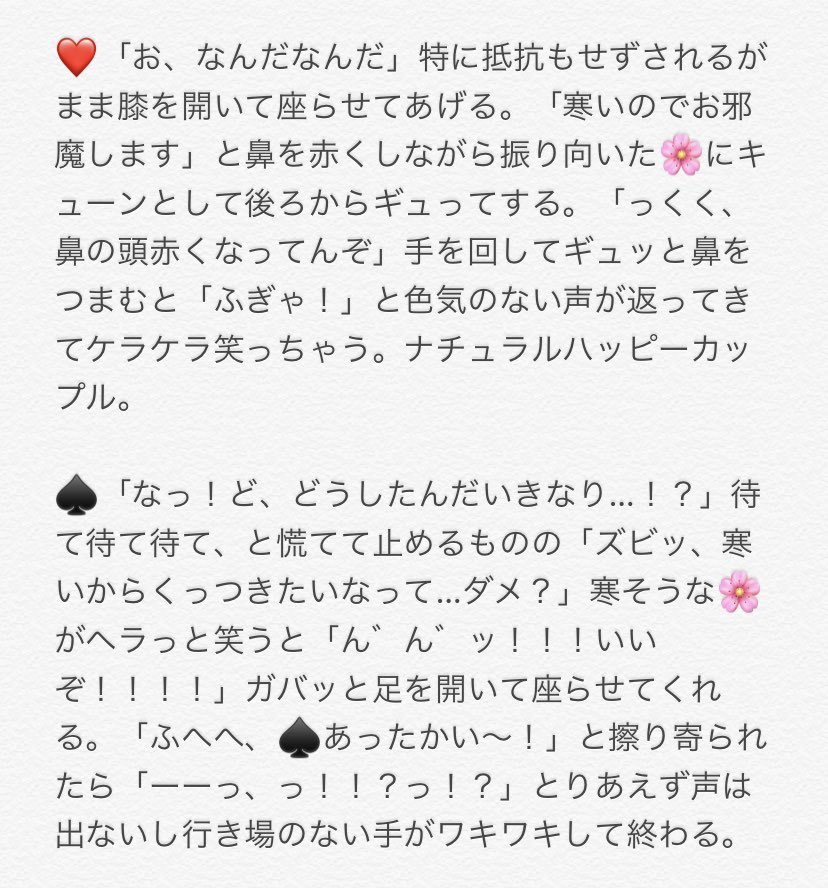 ❤️「お、なんだなんだ」特に抵抗もせずされるが
まま膝を開いて座らせてあげる。「寒いのでお邪
魔します」と鼻を赤くしながら振り向いた🌸にキ
ューンとして後ろからギュってする。「っくく、
鼻の頭赤くなってんぞ」手を回してギュッと鼻を
つまむと「ふぎゃ！」と色気のない声が返ってき
てケラケラ笑っちゃう。ナチュラルハッピーカッ
プル。
♠️「なっ！ど、どうしたんだいきなり…！？」待
て待て待て、と慌てて止めるものの「ズビッ、寒
いからくっつきたいなって…ダメ？」寒そうな🌸
がヘラっと笑うと「ん゛ん゛ッ！！！いい
ぞ！！！！」ガバッと足を開いて座らせてくれ
る。「ふへへ、♠️あったかい〜！」と擦り寄られ
たら「ーーっ、っ！！？っ！？」とりあえず声は
出ないし行き場のない手がワキワキして終わる。